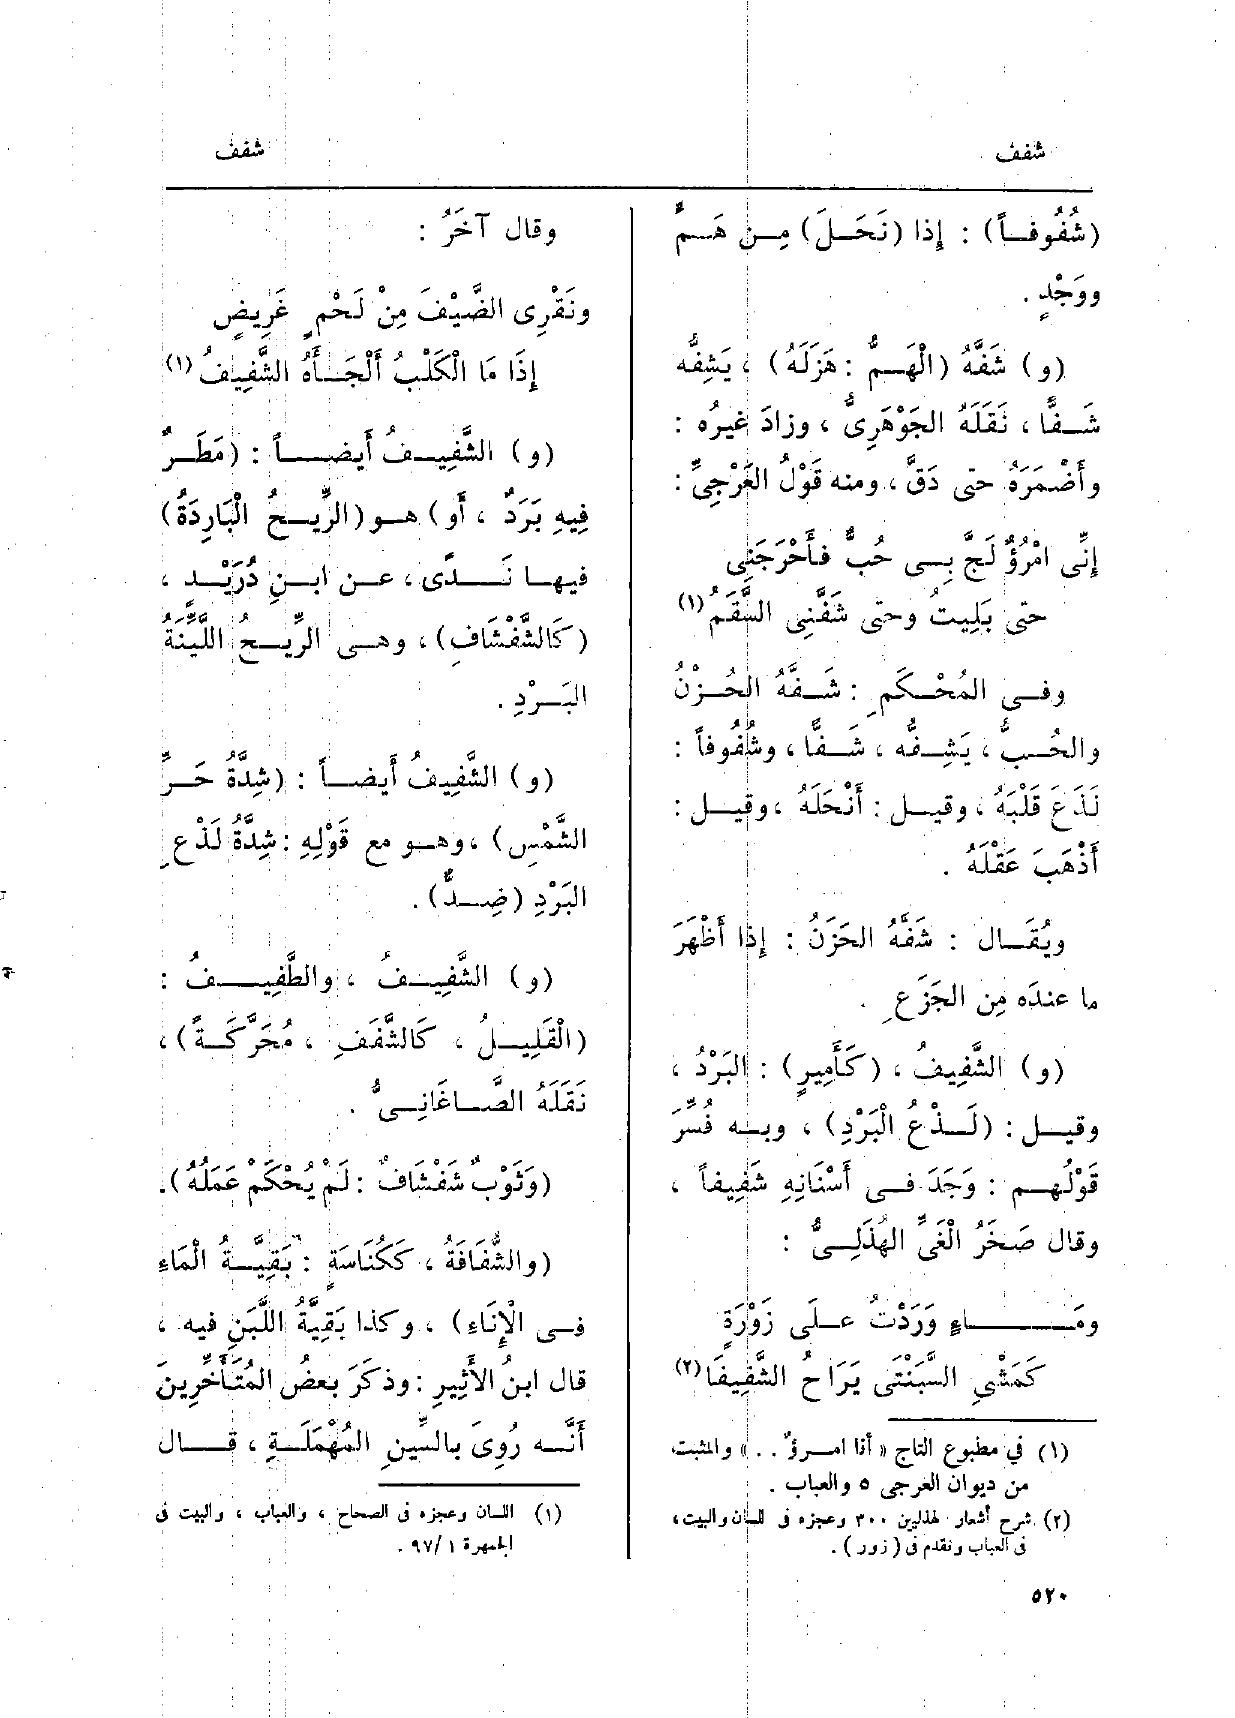 شفف
شفف
(شُفُوفاً) : إذا (نَحَلَ) مِن هَمٍّ
ووَجْدٍ .
(و) شَفَّهُ (الْهَمُّ : هَزَلَهُ) ، يَشِفُّه
شَفًّا ، نَقَلَهُ الجَوْهَرِىُّ ، وزادَ غيرُه :
وأَضْمَرَهُ حتى دَقَّ ، ومنه قَوْلُ العَرْجِىِّ :
إِنِّى امْرُؤٌ لَجَّ بِى حُبٌّ فأَحْرَجَنِى
حتى بَلِيتُ وحتى شَفَّنِى السَّقَمُ (١)
وفى المُحْكَمِ : شَفَّهُ الحُزْنُ
والحُبُّ ، يَشِفُّه ، شَفًّا ، وشُفُوفاً :
لَذَعَ قَلْبَهُ ، وقيل : أَنْحَلَهُ ، وقيل :
أَذْهَبَ عَقْلَهُ .
ويُقَال : شَفَّهُ الحَزَنُ : إِذا أَظْهَرَ
ما عندَه مِن الجَزَعِ .
(و) الشَّفِيفُ ، (كَأَمِيرٍ) : البَرْدُ ،
وقيل : (لَذْعُ الْبَرْدِ) ، وبه فُسِّرَ
قَوْلُهم : وَجَدَ فى أَسْنَانِهِ شَفِيفاً ،
وقال صَخْرُ الْغَىِّ الهُذَلِىُّ :
ومَاءٍ وَرَدْتُ علَى زَوْرَةٍ
كَمَشْىِ السَّبَنْتَى يَرَاحُ الشَّفِيفَا (٢)
(١) في مطبوع التاج « أنا امرؤٌ . . » والمثبت
من ديوان العرجى ٥ والعباب .
(٢) شرح أشعار الهذليين ٣٠٠ وعجزه فى اللسان والبيت ،
فى العباب وتقدم فى (زور) .
وقال آخَرُ :
ونَقْرِى الضَّيْفَ مِنْ لَحْمٍ غَرِيضٍ
إِذَا مَا الْكَلْبُ أَلْجَأَهُ الشَّفِيفُ (١)
(و) الشَّفِيفُ أَيضاً : (مَطَرٌ
فِيهِ بَرَدٌ ، أَو) هو (الرِّيحُ الْبَارِدَةُ)
فيها نَدًى ، عن ابنِ دُرَيْد ،
(كَالشَّفْشَافِ) ، وهى الرِّيحُ اللَّيِّنَةُ
البَرْدِ .
(و) الشَّفِيفُ أَيضاً : (شِدَّةُ حَرِّ
الشَّمْسِ) ، وهو مع قَوْلِهِ : شِدَّةُ لَذْعِ
البَرْدِ (ضِدٌّ) .
(و) الشَّفِيفُ ، والطَّفِيفُ :
(الْقَلِيلُ ، كَالشَّفَفِ ، مُحَرَّكَةً) ،
نَقَلَهُ الصَّاغَانِىُّ .
(وَثَوْبٌ شَفْشَافٌ : لَمْ يُحْكَمْ عَمَلُهُ) .
(والشُّفَافَةُ ، كَكُنَاسَةٍ : بَقِيَّةُ الْمَاءِ
فى الْإِنَاءِ) ، وكذا بَقِيَّةُ اللَّبَنِ فيه ،
قال ابنُ الأَثِيرِ : وذكَرَ بعضُ المُتَأَخِّرِينَ
أَنَّه رُوِىَ بالسِّينِ المُهْمَلَةِ ، قال
(١) اللسان وعجزه فى الصحاح ، والعباب ، والبيت فى
الجمهرة ١ /٩٧ .
٥٢٠